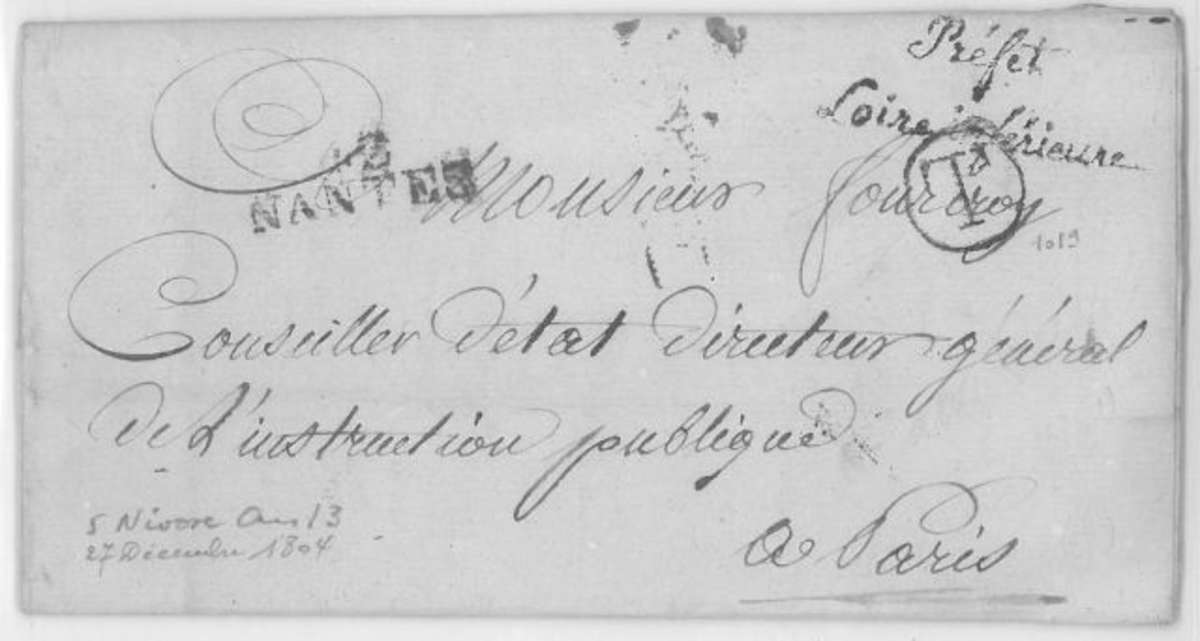 Préfet
Loire inférieure
42
NANTES
Monsieur fourcroy
1019
Conseiller d'état directeur général
de L'instruction publique
a Paris
5 Nivose An 13
27 Décembre 1804